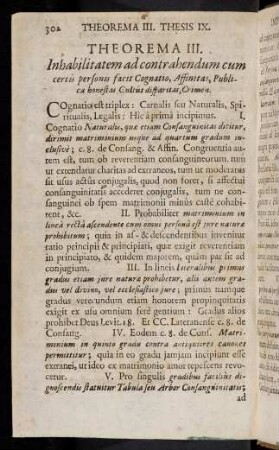 302 THEOREMA III. THESIS IX.
THEOREMA III.
Inhabilitatem ad contrahendum cum
certis personis facit Cognatio, Affinitas, Publi-
ca honestas Cultus disparitas, Crimen.
Cognatio est triplex: Carnalis seu Naturalis, Spi-
ritualis, Legalis: Hic à prima incipimus. I.
Cognatio Naturalis, quæ etiam Consanguinitas dicitur,
dirimit matrimonium usque ad quartum gradum in-
clusivè; c. 8. de Consang. & Affin. Congruentia au-
tem est, tum ob reverentiam consanguineorum, tum
ut extendatur charitas ad extraneos, tum ut moderatus
sit usus actus conjugalis, quod non foret, si affectui
consanguinitatis accederet conjugalis, tum ne con-
sanguinei ob spem matrimonii minus castè cohabi-
tent, &c. II. Probabiliter matrimonium in
linea recta ascendente cum omni persona est jure naturæ
prohibitum; quia in as- & descendentibus invenitur
ratio principii & principiati, quæ exigit reverentiam
in principiato, & quidem majorem, quàm par sit ad
conjugium. III. In lineis lateralibus primus
gradus etiam jure naturæ prohibetur, alii autem gra-
dus vel divino, vel ecclesiastico jure; primùm namque
gradus verecundum etiam honorem propinquitatis
exigit ex usu omnium ferè gentium: Gradus alios
prohibet Deus Levit. 18. Et CC. Lateranense c. 8. de
Consang. IV. Eodem c. 8. de Cons. Matri-
monium in quinto gradu contra antiquiores canones
permittitur; quia in eo gradu jamjam incipiunt esse
extranei, ut ideo ex matrimonio amor repescens revo-
cetur. V. Pro singulis gradibus facilius di-
gnoscendis statuitur Tabula seu Arbor Consanguinitatis;
ad